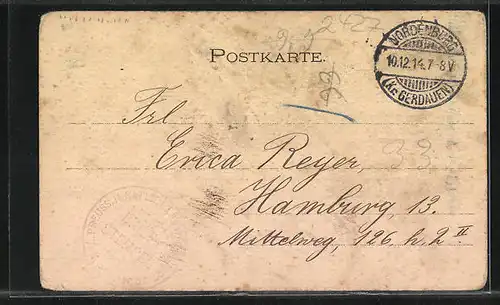 2427
POSTKARTE.
NORDENBURG
10.12.14.7-8V
(Kr. GERDAUEN)
Frl
Erica Reyer,
Hamburg 13.
Mittelweg, 126 h. 2 II
33